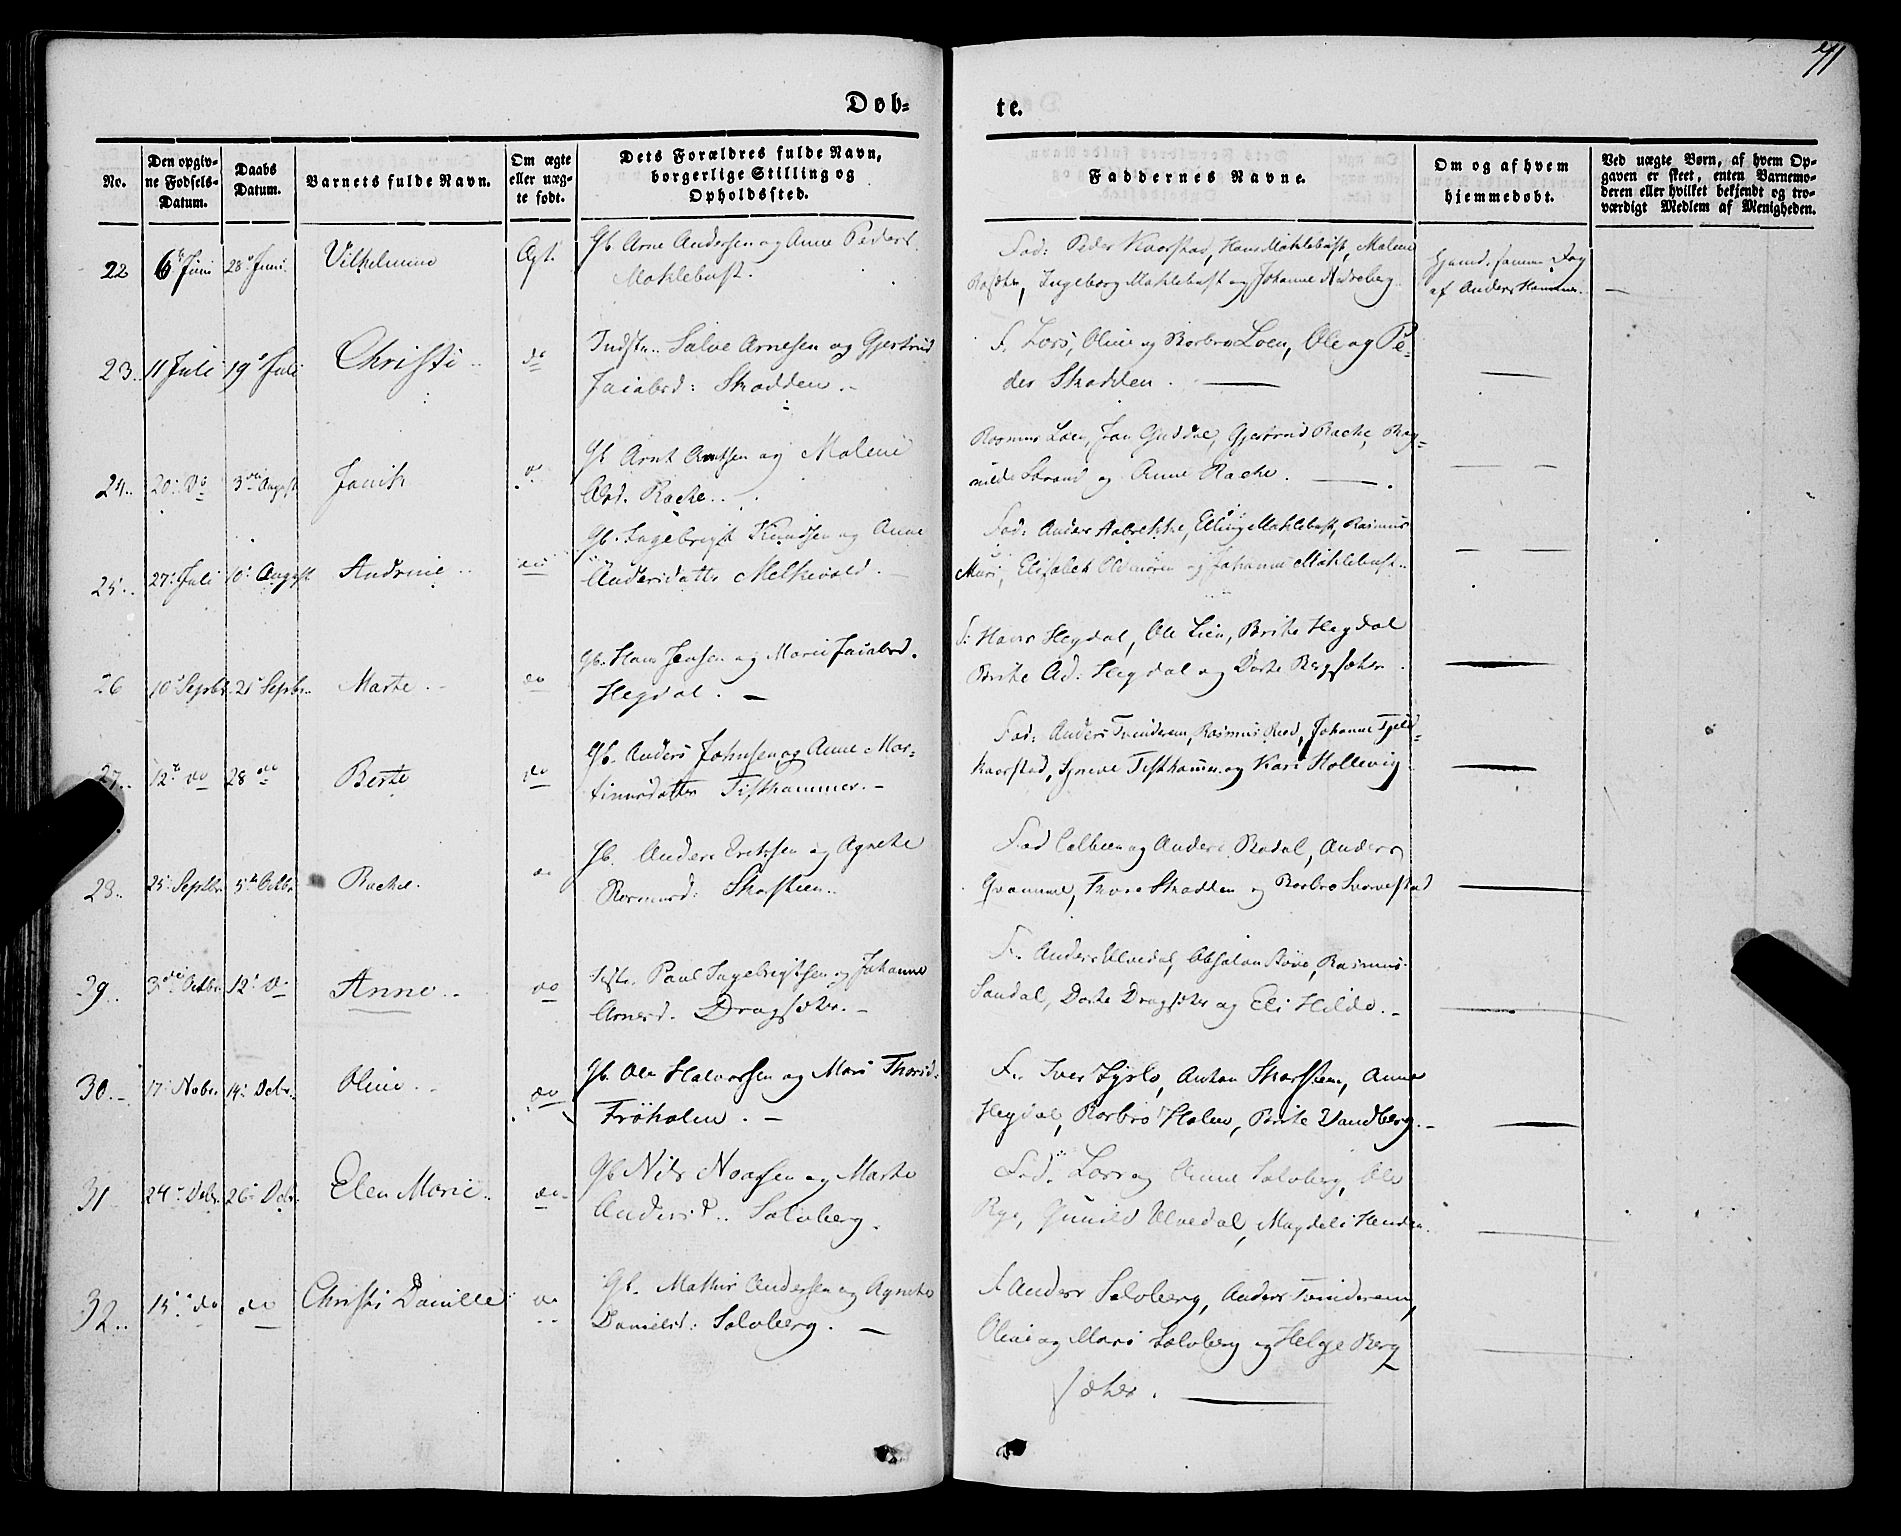 71
Døb-
te.
No.
Den opgiv-
ne Fødsels-
Datum.
Daabs
Datum.
Barnets fulde Navn.
Om ægte
eller uæg-
te født.
Dets Forældres fulde Navn,
borgerlige Stilling og
Opholdssted.
Faddernes Navne.
Om og af hvem
hjemmedøbt.
Ved uægte Børn, af hvem Op-
gaven er skeet, enten Barnemo-
deren eller hvilket bekjendt og tro-
værdigt Medlem af Menigheden.
22 6 Juni 28 Juni Vilhelmine Ægt. Gb. Arne Andersen og Anne Peders
Mahlebust.
Fad: Peder Kaarstad, Hans Mahlebust, Malene
Ingeborg Mahlebust og Johanne
Hjemd. samme Dag
af Anders
23. 11 Juli 19 Juli Christi do Indst. Salve Arnesen og Gjertrud
Jacobsd: Skadden.
F. Lars, Oline og Barbro Loen, Ole og Pe-
der Skadden.
24. 20 do 3die August do Gb. Arnt Arntsen og Malene
Rache.
Rasmus Loen, Jon Guddal, Gjertrud Rache, Rag-
nilde Strand og Anne Rache.
25. 27 Juli 10 August Andrine do Gb. Ingebrigt Knudsen og Anne
Andersdatter Melkevold.
Fad: Anders Aabrekke, Elling Mahlebust, Rasmus
Muri, Elisabeth Oldenøren og Johanne Mahlebust.
26 10 Septbr. 21 Septbr. Marte do Gb. Hans Jensen og Marie Jacobsd.
Hegdal.
F: Hans Hegdal, Ole Lien, Brite Hegdal
Brite Ad: Hegdal og Dorte Bergsæter.
27. 12 do 28 do Berte do Gb. Anders Johnsen og Anne Mar-
tinusdatter Tisthammer.
Fad: Anders Tvinderem, Rasmus Rød, Johanne Tjeld-
kaarstad, Synneve Tisthammer og Kari Hollevig
28. 25 Septbr. 5te Octbr. Rachel do Gb. Anders Eriksen og Agnethe
Rasmusd: Skarsteen.
Fad Colbeen og Anders Rødal, Anders
Qvamme, Thore Skadden og Barbro
29. 3die Octbr. 12 do Anne do Paul Ingebrigtsen og Johanne
Arnesd. Dragsæter.
F. Anders Ulvedal, Absalon Rasmus
Sandal, Dorte Dragsæter og Eli Hilde.
30. 17 Novbr. 14 Decbr. Oline do Gb. Ole Halvorsen og Mari Thorsd:
Frøholm.
F. Iver Lyslo, Anton Skarsteen, Anne
Hegdal, Barbro Holm, Brite Vandberg.
31 24 Decbr. 26 Decbr. Elen Marie do Gb. Nils Noassen og Marte
Andersd. Solvberg.
Fad. Lars og Anne Solvberg, Ole
Rye, Gunild Ulvedal, Magdeli Henden
32. 15 do do Christi Danille do Gb. Mathis Andersen og Agnethe
Danielsd: Solvberg.
F. Anders Solvberg, Anders Tvinderem,
Oline og Mari Solvberg og Helge Berg
sæter.